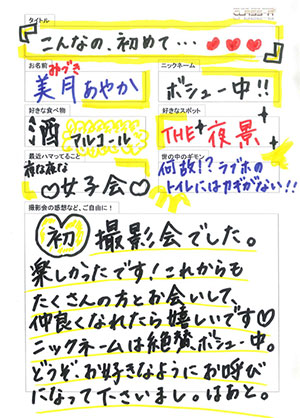 CLASS-A
タイトル
こんなの、初めて…♥♥♥
お名前
みづき
美月あやか
ニックネーム
ボシュー中!!
好きな食べ物
酒 アルコール
好きなスポット
THE 夜景
最近ハマってること
夜な夜な
♡女子会♡
世の中のギモン
何故!?ラブホの
トイレにはカギがない!!
撮影会の感想など、ご自由に!
初 撮影会でした。
楽しかったです!これからも
たくさんの方とお会いして、
仲良くなれたら嬉しいです♡
ニックネームは絶賛、ボシュー中。
どうぞ、お好きなようにお呼び
になって下さいまし。はあと。